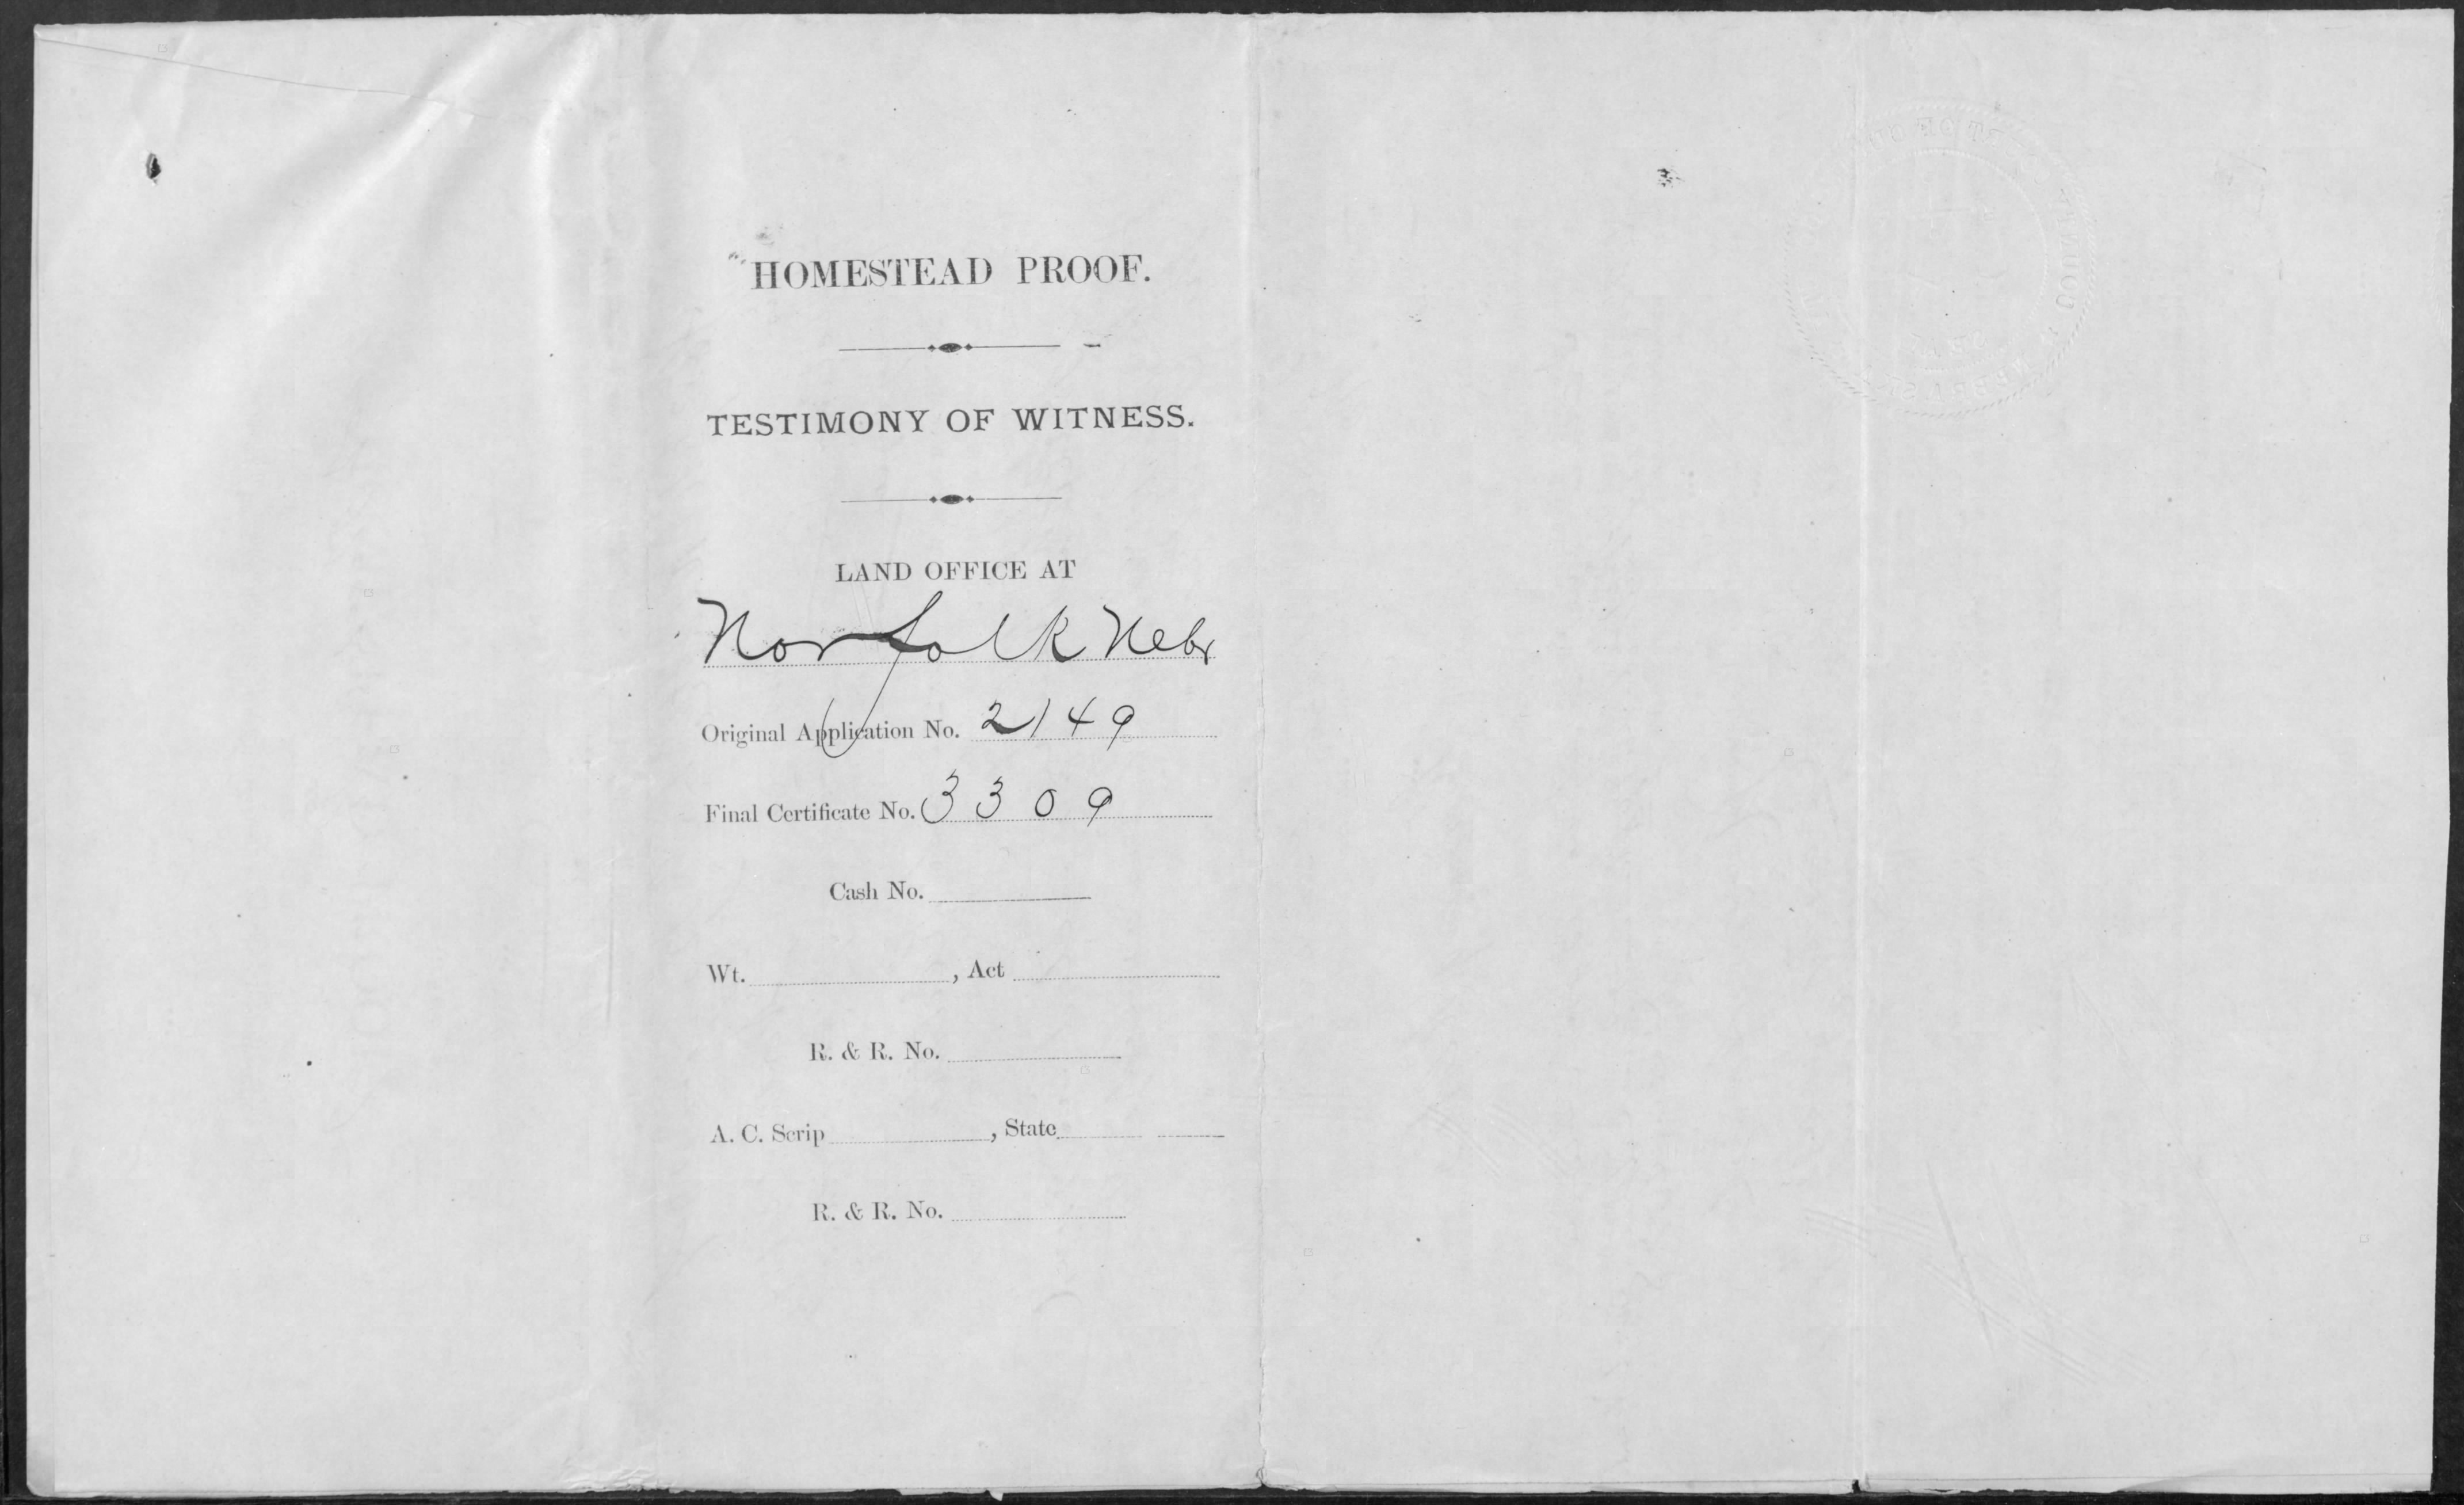 HOMESTEAD PROOF.
TESTIMONY OF WITNESS.
LAND OFFICE AT
Norfolk Nebr
Original Application No. 2149
Final Certificate No. 3309
Cash No.
Wt. , Act
R. & R. No.
A. C. Scrip , State
R. & R. No.